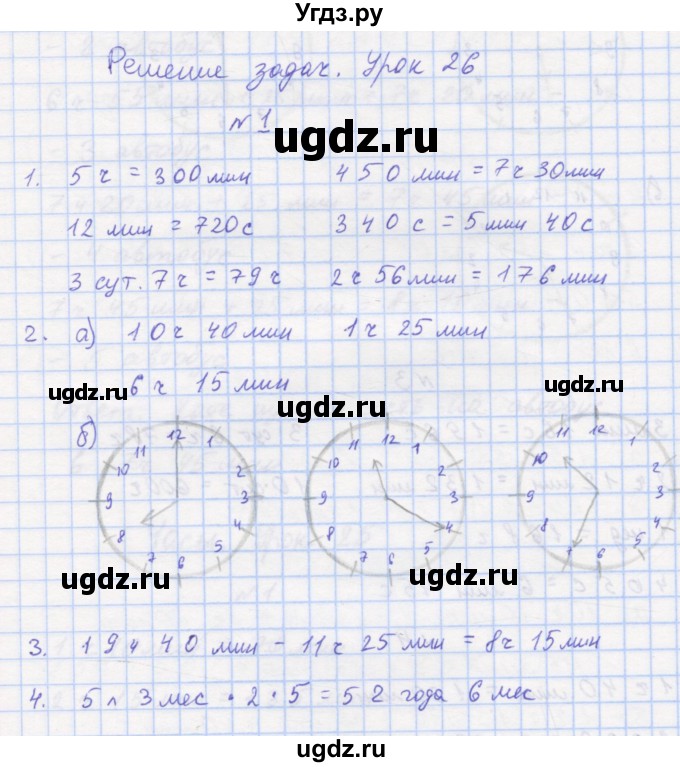 Угдз.ру
Решение задач. Урок 26
№ 1
ugdz.ru
1. 5 ч = 300 мин 450 мин = 7 ч 30 мин
12 мин = 720 с 340 с = 5 мин 40 с
3 сут. 7 ч = 79 ч 2 ч 56 мин = 176 мин
2. а) 10 ч 40 мин 1 ч 25 мин
ugdz.ru 6 ч 15 мин ugdz.ru ugdz.ru
б) 12 1 2 3 4 5 6 7 8 9 10 11
12 1 2 3 4 5 6 7 8 9 10 11
12 1 2 3 4 5 6 7 8 9 10 11
ugdz.ru ugdz.ru ugdz.ru
3. 19 ч 40 мин - 11 ч 25 мин = 8 ч 15 мин
4. 5 л 3 мес · 2 · 5 = 52 года 6 мес
ugdz.ru ugdz.ru
ugdz.ru